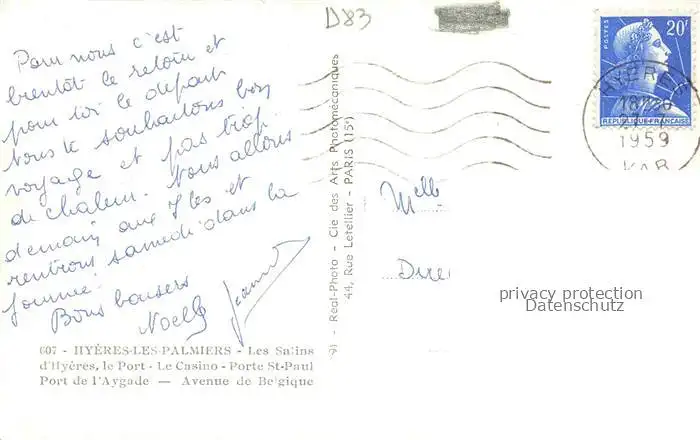 D83
Pour nous c'est
bientôt le retour et
pour toi le départ
Nous te souhaitons bon
voyage et pas trop
de chaleur. Nous allons
demain aux Iles et
rentrons samedi dans la
journée.
Bons baisers
Noelle
Jeannot
607 - HYÈRES-LES-PALMIERS - Les Salins
d'Hyères, le Port - Le Casino - Porte St-Paul
Port de l'Aygade — Avenue de Belgique
91 - Real-Photo - Cie des Arts Photomécaniques
44, Rue Letellier - PARIS (15e)
POSTES
20F
REPUBLIQUE-FRANÇAISE
HYÈRES
1959
VAR
Melle
privacy protection
Datenschutz